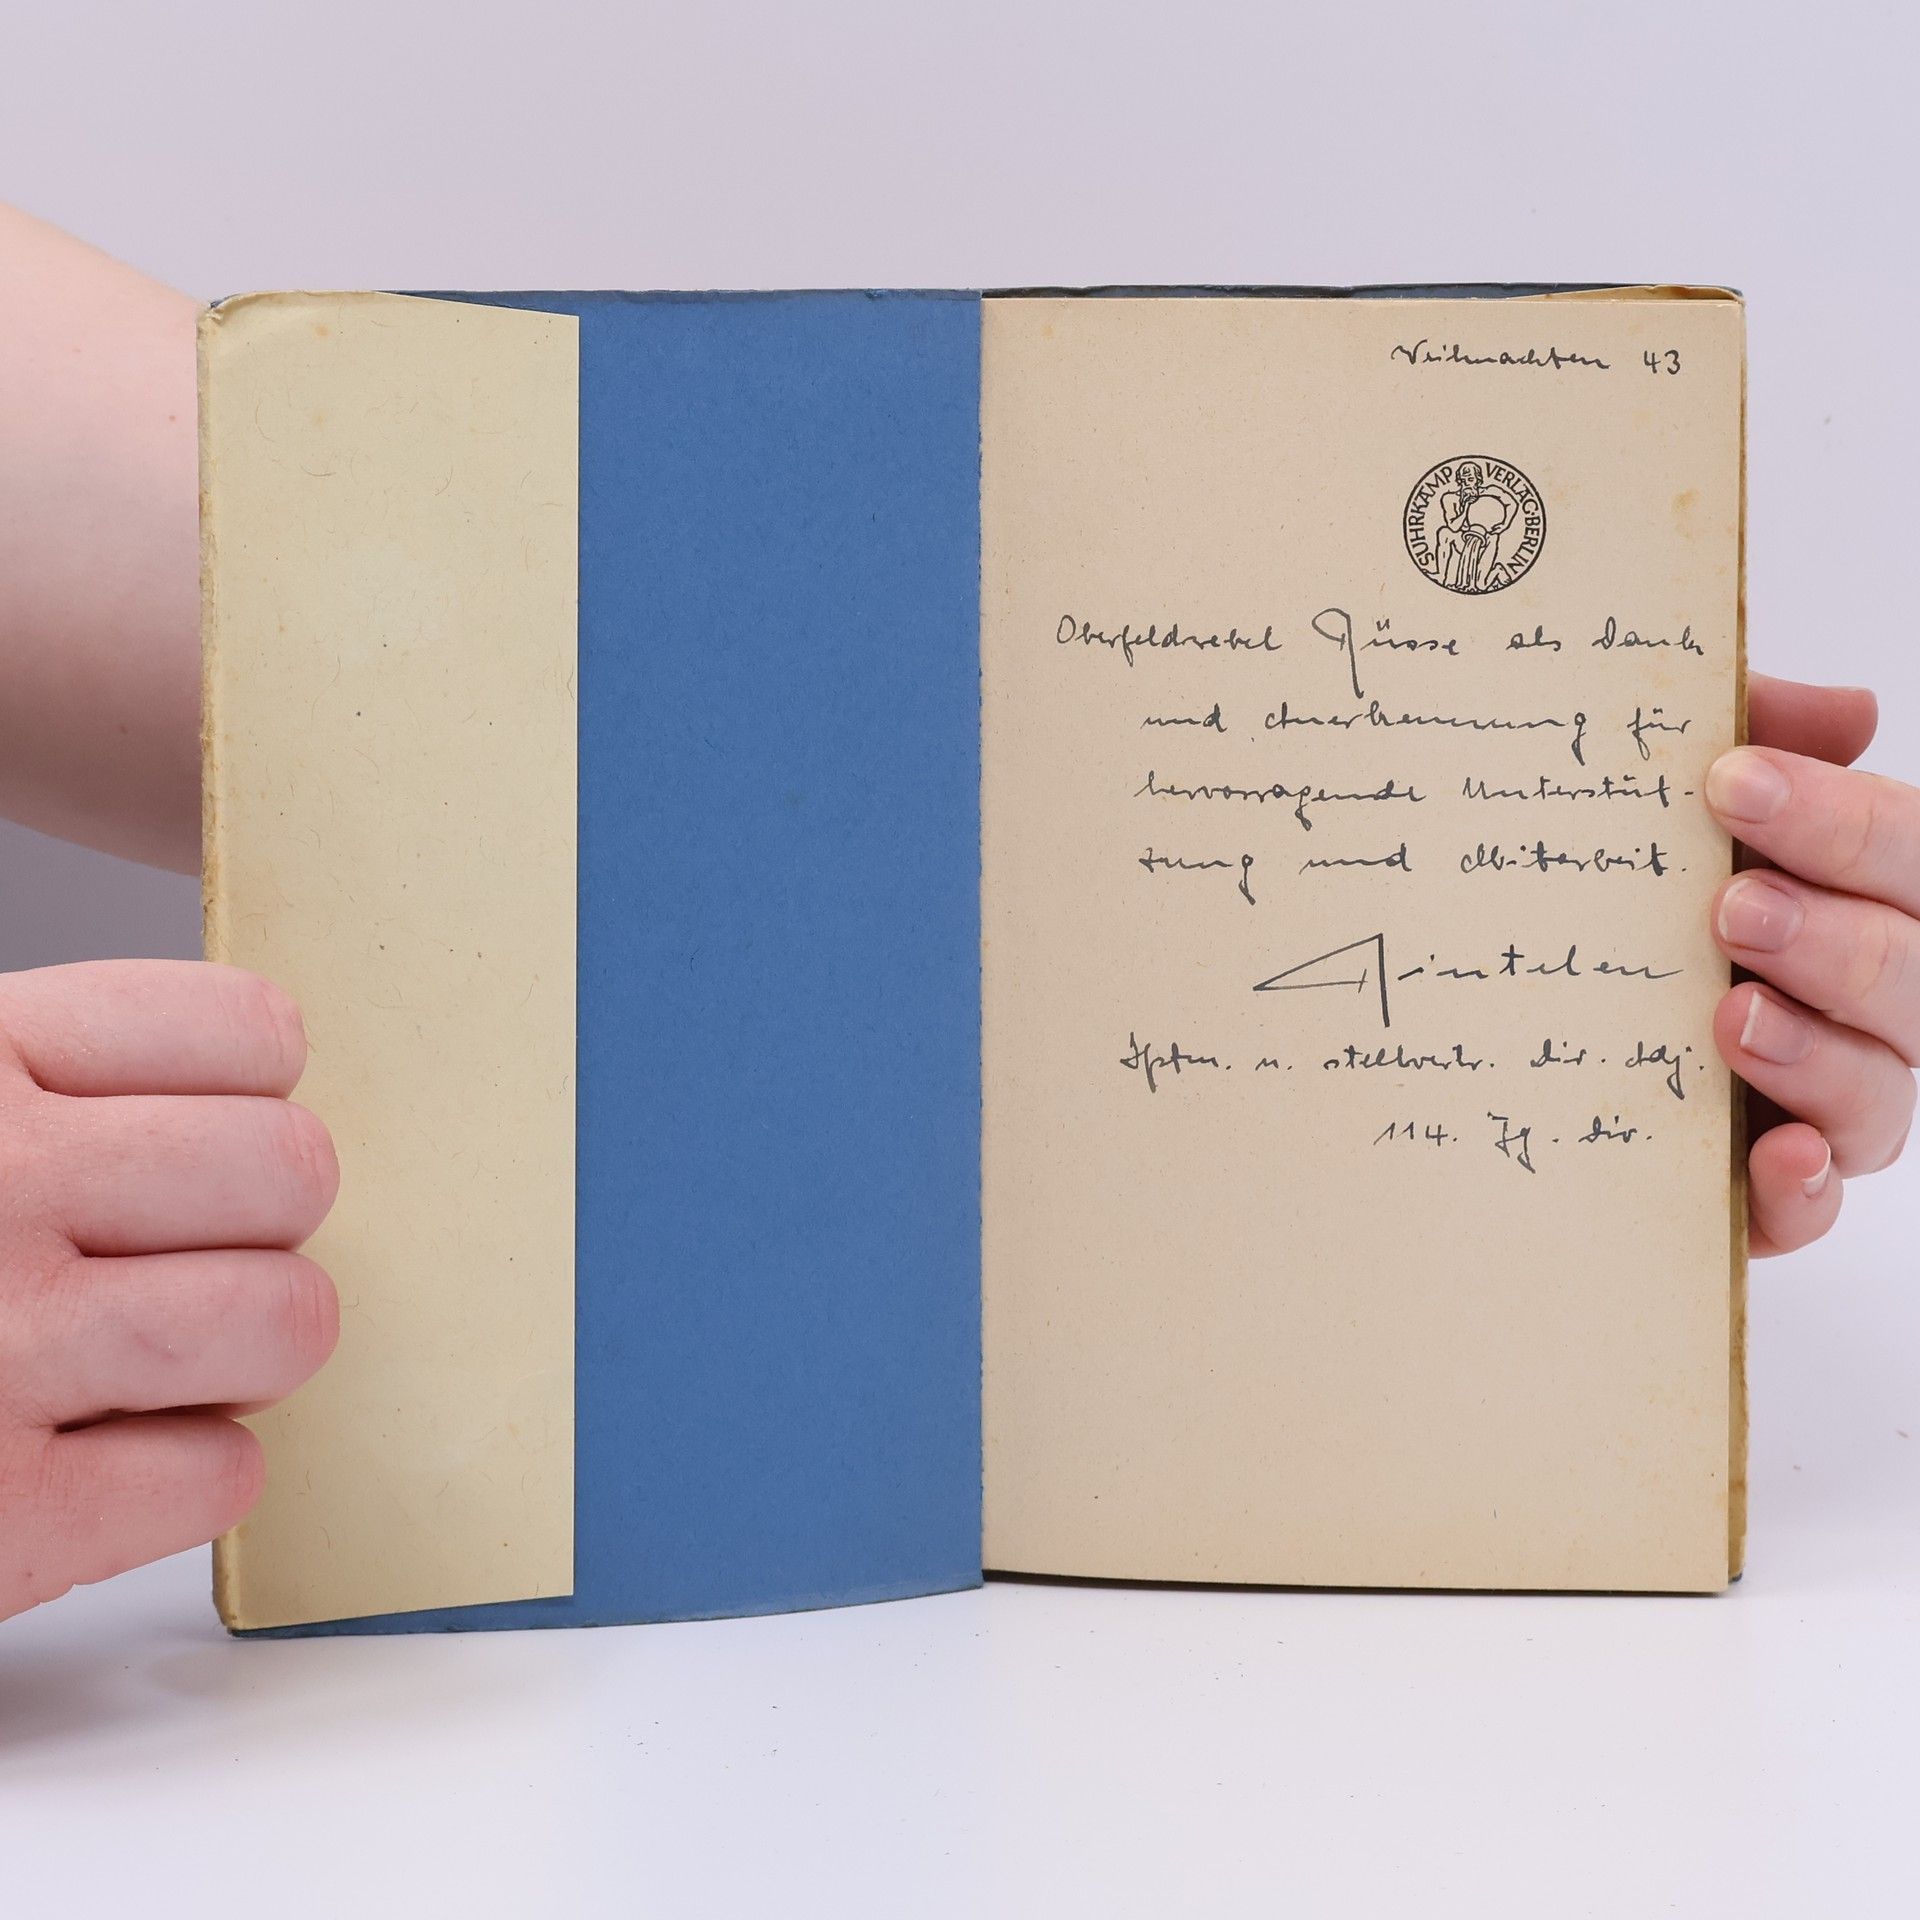 Weihnachten 43
SUHRKAMP VERLAG·BERLIN
Oberfeldwebel Rüsse als Dank
und Anerkennung für
hervorragende Unterstüt-
zung und Mitarbeit.
Rintelen
Hptm. u. stellvertr. Div. Adj.
114. Jg. Div.